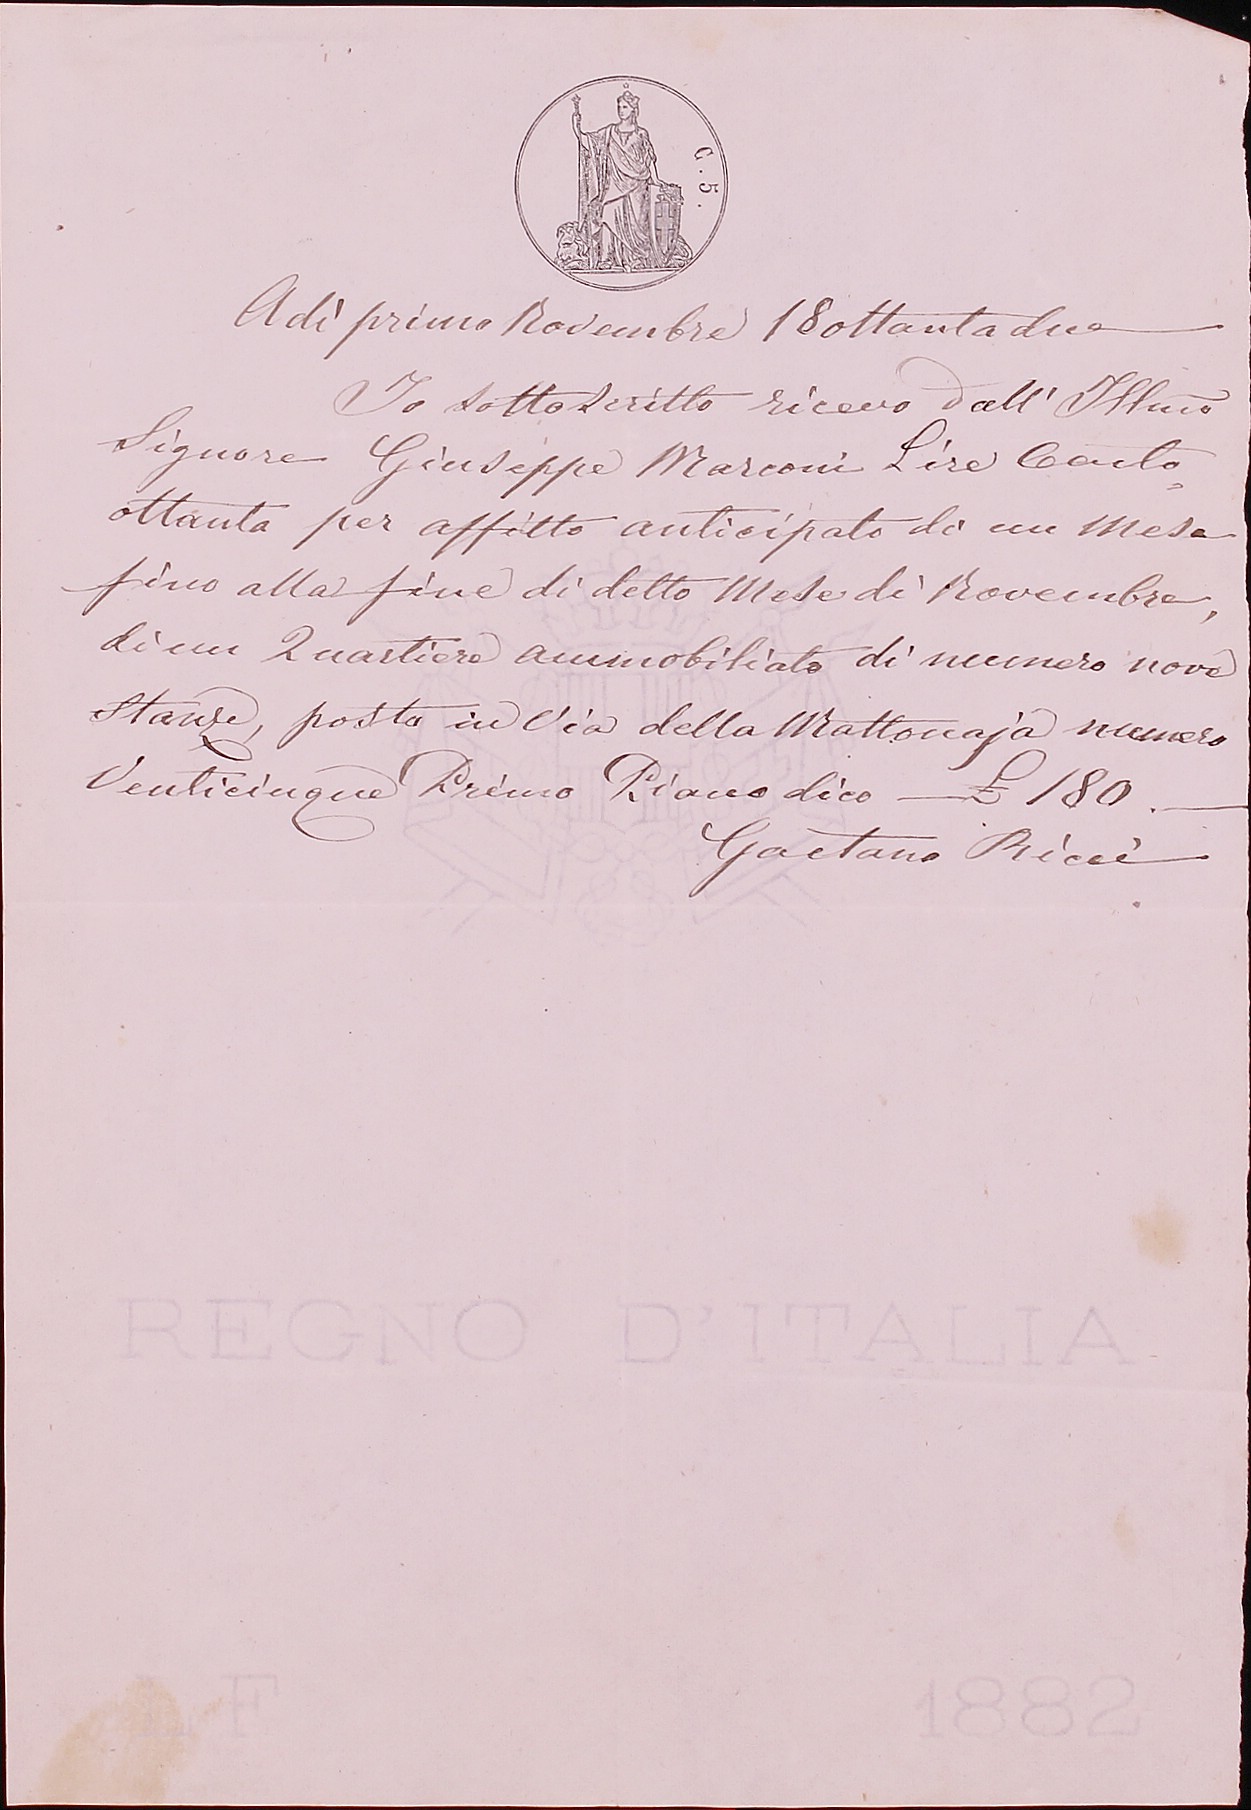 C. 5.
Adi primo Novembre 18ottantadue
Io sottoscritto ricevo dall' Illmo
Signore Giuseppe Marconi Lire Cento
ottanta per affitto anticipato di un Mese
fino alla fine di detto Mese di Novembre,
di un Quartiere ammobiliato di numero nove
stanze, posto in Via della Mattonaja numero
Venticinque Primo Piano dico — £ 180. —
Gaetano Ricci
REGNO D'ITALIA
1882